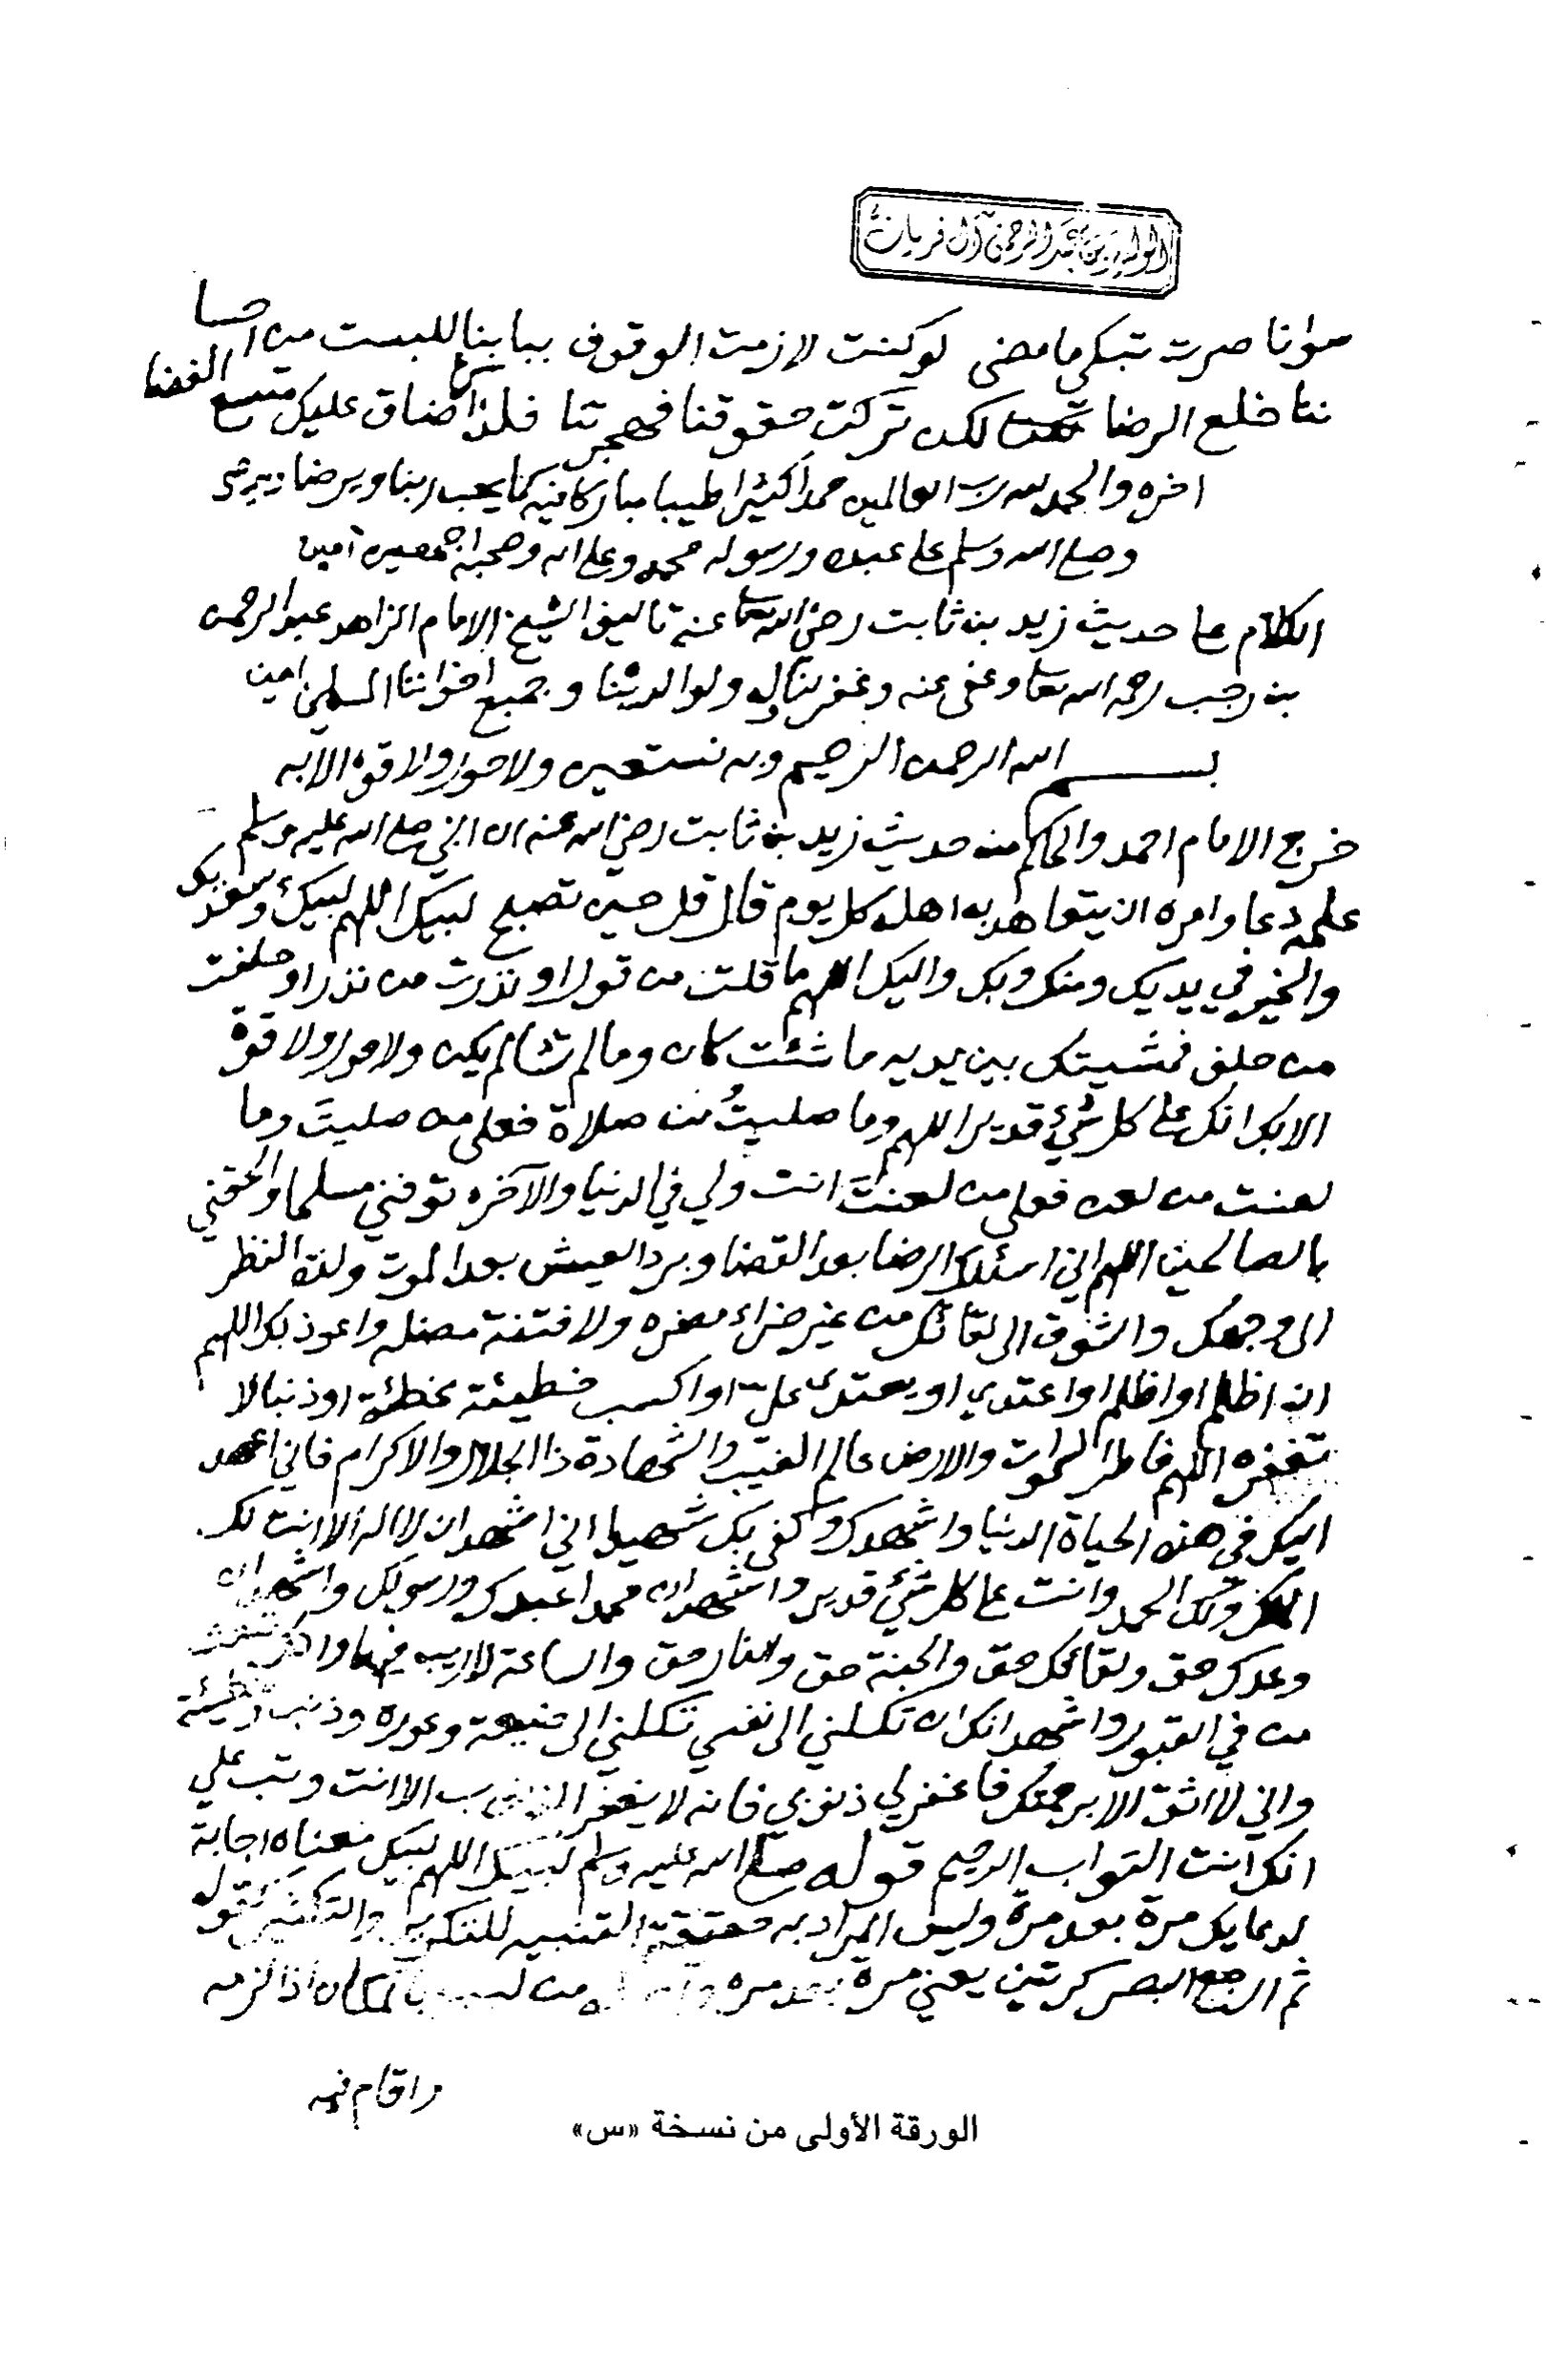 الوليد بن عبد الرحمن آل فريان
سوانا صرت تبكي ما مضى لو كنت لازمت الوقوف ببابنا للبست من احسا
ننا خلع الرضا لكن تركت حقوقنا فهجرتنا فلذا ضاق عليك متسع الفضا
اخره والحمد لله رب العالمين حمدا كثيرا طيبا مباركا فيه كما يحب ربنا ويرضا
وصلى الله وسلم على عبده ورسوله محمد وعلى اله وصحبه اجمعين آمين
الكلام على حديث زيد بن ثابت رضي الله تعا عنه تاليف الشيخ الامام الزاهد عبد الرحمن
بن رجب رحمه الله تعا وعفى عنه وغفر لنا وله ولوالدينا وجميع اخواننا المسلمين امين
بسم الله الرحمن الرحيم وبه نستعين ولا حول ولا قوة الا به
خرج الامام احمد والحاكم من حديث زيد بن ثابت رضي الله عنه ان النبي صلى الله عليه وسلم
علمه دعا وامره ان يتعاهد به اهله كل يوم قال قل حين تصبح لبيك اللهم لبيك وسعديك
والخير في يديك ومنك وبك واليك اللهم ما قلت من قول او نذرت من نذر او حلفت
من حلف فمشيتك بين يديه ما شئت كان وما لم تشا لم يكن ولا حول ولا قوة
الا بك انك على كل شيء قدير اللهم وما صليتُ من صلاة فعلى من صليتَ وما
لعنت من لعن فعلى من لعنتَ انت ولي في الدنيا والآخره توفني مسلما والحقني
بالصالحين اللهم اني اسئلك الرضا بعد القضا وبرد العيش بعد الموت ولذة النظر
الى وجهك والشوق الى لقائك من غير ضراء مضره ولا فتنة مضله واعوذ بك اللهم
ان اظلم او اظلم او اعتدي او يعتدى علي او اكسب خطيئة مخطئة او ذنبا لا
تغفره اللهم فاطر السموات والارض عالم الغيب والشهادة ذا الجلال والاكرام فاني اعهد
اليك في هذه الحياة الدنيا واشهدك وكفى بك شهيدا اني اشهد ان لا اله الا انت لك
الملك ولك الحمد وانت على كل شيء قدير واشهد ان محمدا عبدك ورسولك واشهد ان
وعدك حق ولقائك حق والجنة حق والنار حق والساعة لا ريب فيها وانك تبعث
من في القبور واشهد انك ان تكلني الى نفسي تكلني الى ضيعة وعوره وذنب وخطيئة
واني لا اثق الا برحمتك فاغفر لي ذنوبي فانه لا يغفر الذنوب الا انت وتب علي
انك انت التواب الرحيم قوله صلى الله عليه وسلم لبيك اللهم لبيك معناه اجابة
لدعايك مرة بعد مرة وليس المراد به حقيقة التثنيه للتكرير والتكثير كقوله
ثم ارجع البصر كرتين يعني مرة بعد مره من بالمكان اذا لزمه
واقام فيه
الورقة الأولى من نسخة «س»